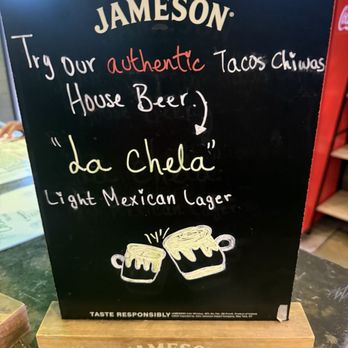 JAMESON®
Try our authentic Tacos Chiwas
House Beer.
"La Chela"
Light Mexican Lager
TASTE RESPONSIBLY.
JAMESON